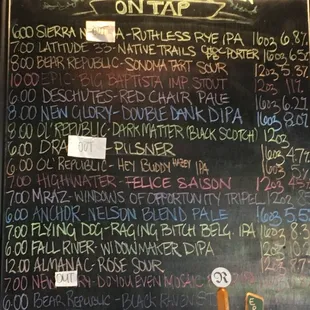 ON TAP
6.00 SIERRA - RUTHLESS RYE IPA 16oz 6.8%
7.00 LATITUDE 33 - NATIVE TRAILS PORTER 16oz
8.00 BEAR REPUBLIC - SONOMA TART SOUR 12oz
10.00 EPIC - BIG BAPTISTA IMP. STOUT 12oz 11%
6.00 DESCHUTES - RED CHAIR PALE 16oz
8.00 NEW GLORY - DOUBLE DANK DIPA 16oz
8.00 OL' REPUBLIC - DARK MATTER (BLACK SCOTCH) 12oz
6.00 OUT - PILSNER 16oz
6.00 OL' REPUBLIC - HEY BUDDY IPA 16oz
7.00 HIGHWATER - FELICE SAISON 12oz
7.00 MRAZ - WINDOWS OF OPPORTUNITY TRIPEL 12oz
6.00 ANCHOR - NELSON BLEND PALE 16oz
7.00 FLYING DOG - RAGING BITCH BELG. IPA 16oz
6.00 FALL RIVER - WIDOWMAKER DIPA 12oz
12.00 ALMANAC - ROSE SOUR
7.00 OUT - DO YOU EVEN MOSAIC
6.00 BEAR REPUBLIC - BLACK